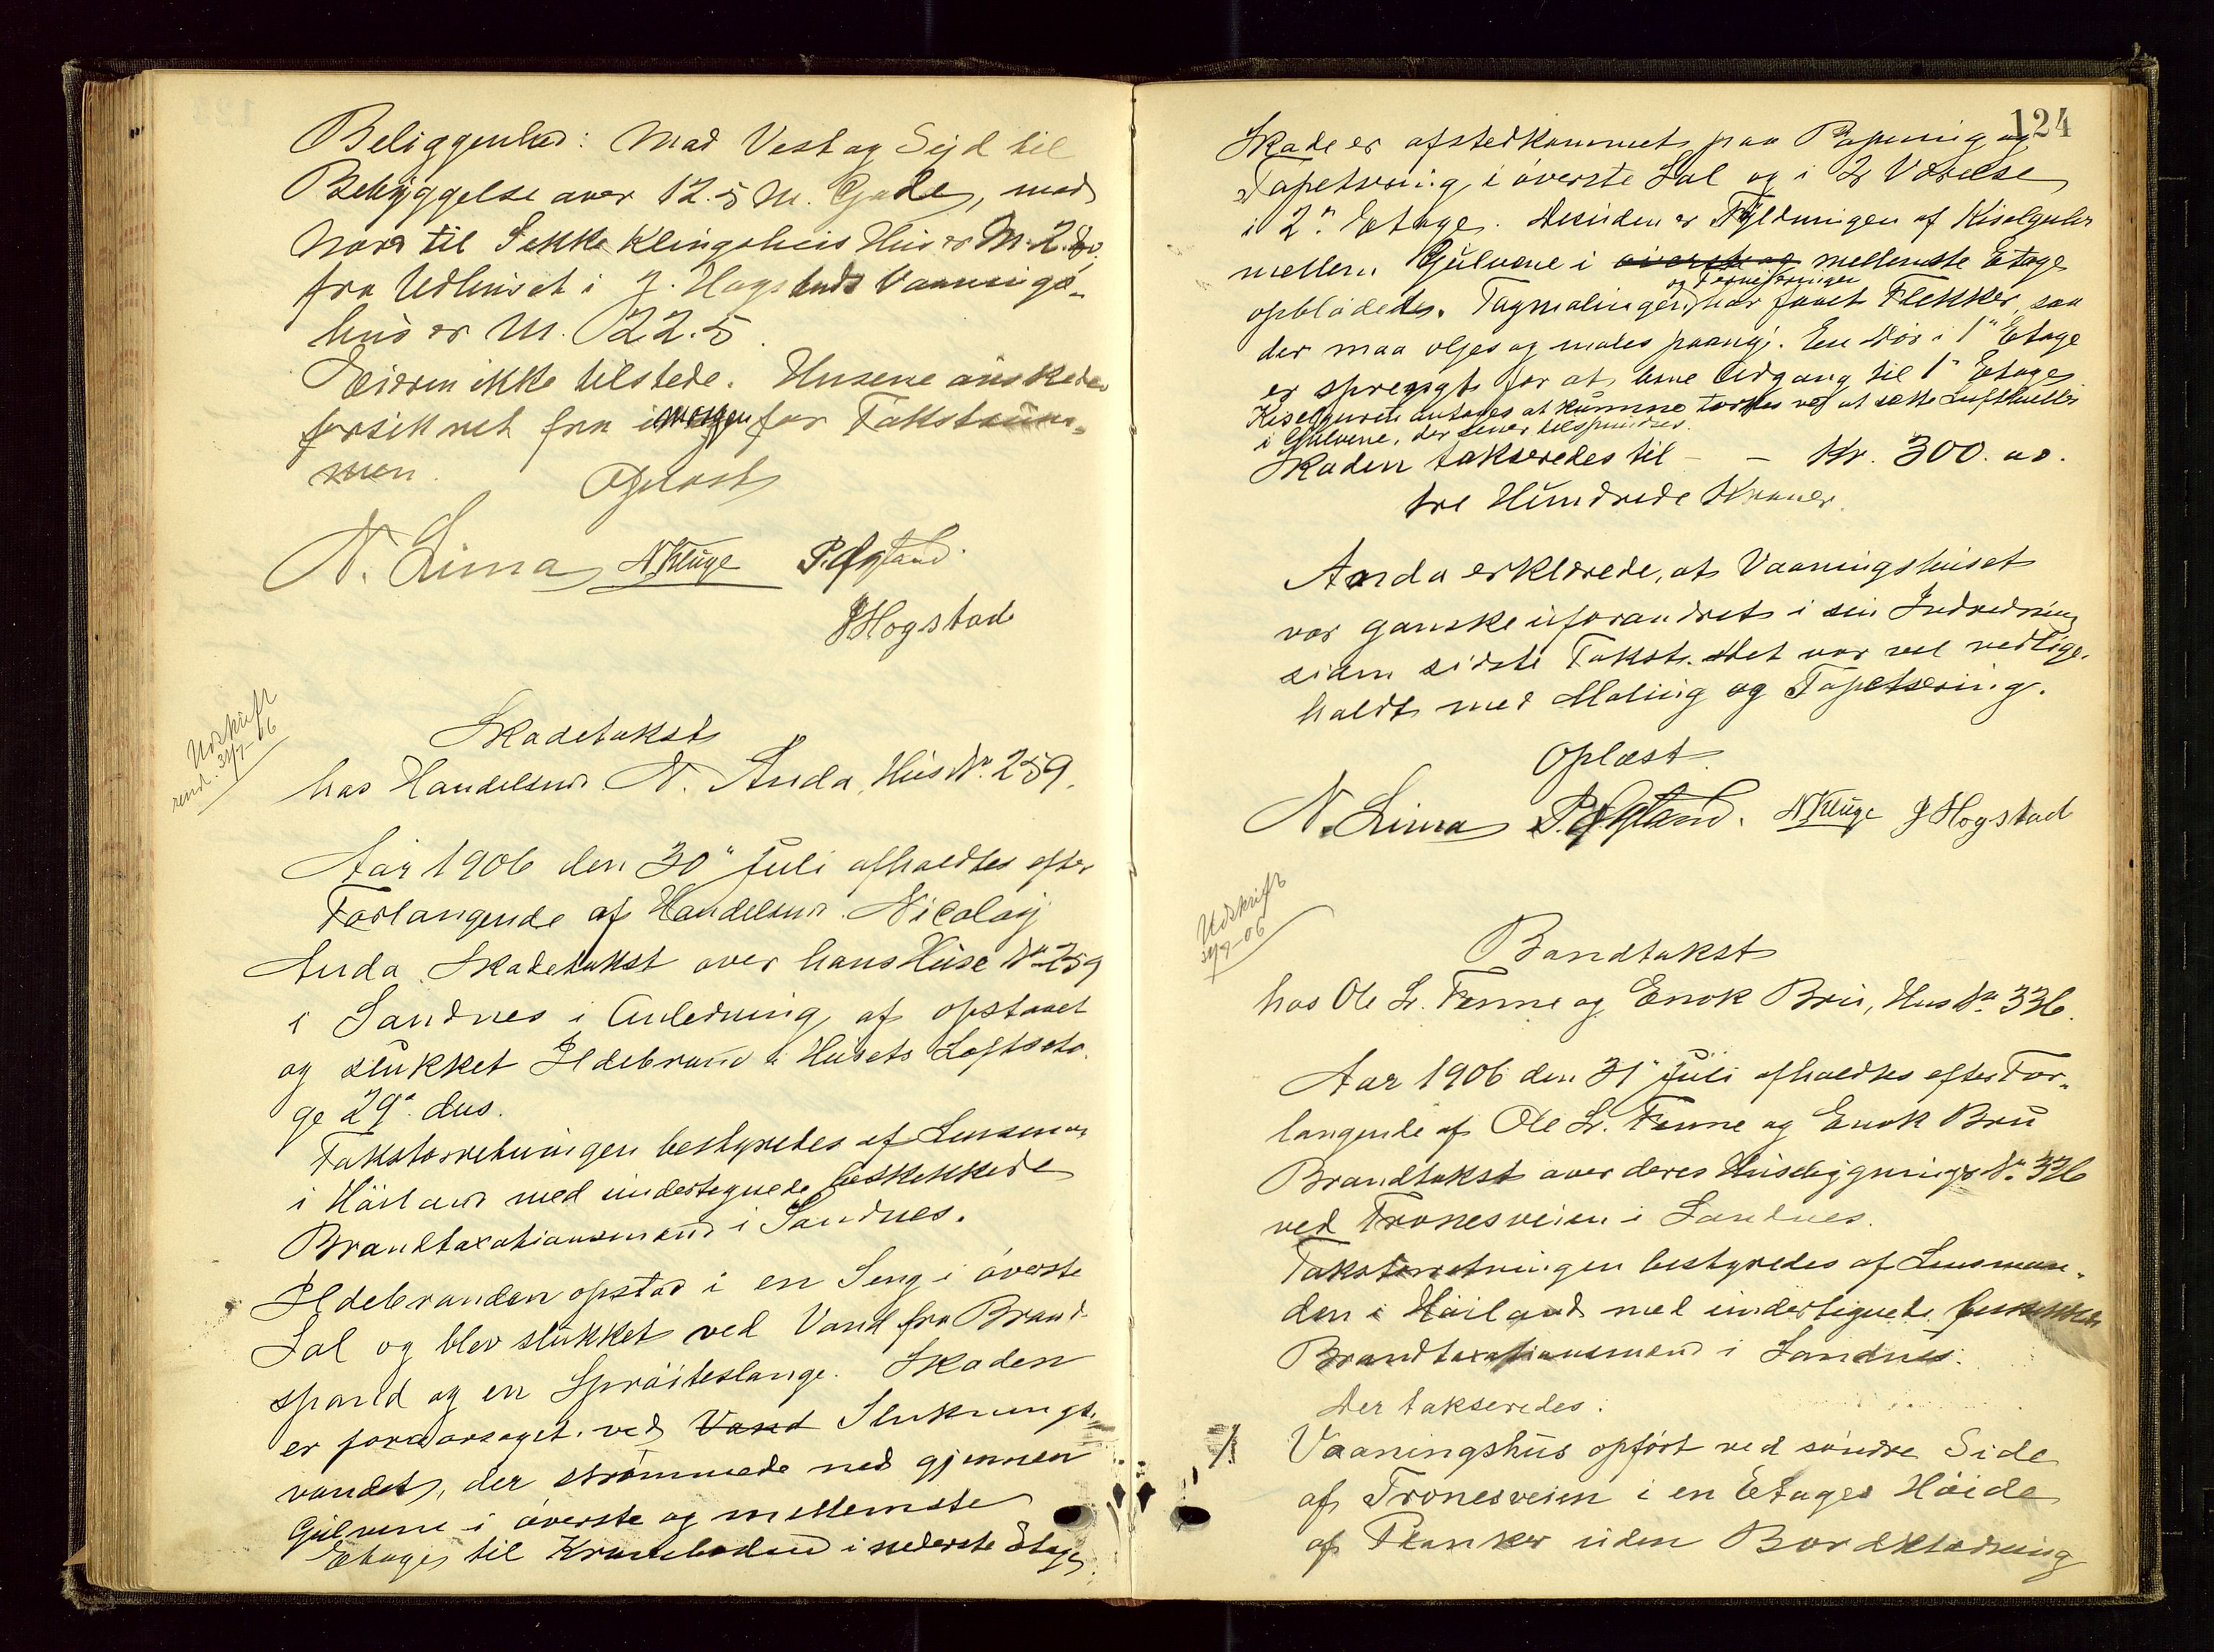 Beliggenhed: Mod Vest og Syd til
Bebyggelse over 12.5 M. Gade, mod
Nord til Sekke Klingsheis Hus er M. 2.80.
fra Udhuset i J. Hogstads Vaanings-
hus er M. 22.5.
Eieren ikke tilstede. Husene önskedes
forsikret fra imorgen for Takstsum-
men.
Oplæst
N. Lima NKluge P. Ogland.
JHogstad
Udskrift
send. 31/7-06
Skadetakst
hos Handelsm. N. Anda, Hus No. 259.
Aar 1906 den 30" Juli afholdtes efter
Forlangende af Handelsm. Nicolay
Anda Skadetakst over hans Huse No 259
i Sandnes i Anledning af opstaaet
og slukket Ildebrand i Husets Loftseta-
ge 29. ds.
Takstforretningen bestyredes af Lensmand
i Höiland med undertegnede beskikkede
Brandtaxationsmænd i Sandnes.
Ildebranden opstod i en Seng i överste
Sal og blev slukket ved Vand fra Brand-
spand og en Spröiteslange. Skaden
er foraarsaget ved Vand Sluknings-
vandet, der strömmede ned gjennem
Gulvene i överste og mellemste
Etage til Kramboden i nederste Etage.
124
Skade er afstedkommet paa Papning og
Tapetsering i överste Sal og i 2 Værelse
i 2den Etage. Desuden er Fyldningen af Kiselguhr
mellem Gulvene i överste og mellemste Etage
og Ferniseringen
oplödedes. Tagmalingen har faaet Flekker, saa
der maa oljes og males paany. En Dör i 1" Etage
er sprængt for at have Adgang til 1" Etage
Kiselguren antages at kunne törkes ved at sætte Lufthuller
i Gulvene, der senere tilspundses.
Skaden takseredes til - - Kr. 300.00.
tre Hundrede Kroner.
Anda erklærede, at Vaaningshuset
var ganske uforandret i sin Indredning
siden sidste Takst. Det var vel vedlige-
holdt med Maling og Tapetsering.
Oplæst
N. Lima P. Ogland. NKluge JHogstad
Udskrift
31/7-06
Bandtakst
hos Ole L. Tenne og Enok Bru, Hus No. 336.
Aar 1906 den 31" Juli afholdtes efter For-
langende af Ole L. Tenne og Enok Bru
Brandtakst over deres Husebygninger No. 336
ved Tronesveien i Sandnes.
Takstforretningen bestyredes af Lensman-
den i Höiland med undertegnede beskikkede
Brandtaxationsmænd i Sandnes.
Der takseredes:
1/ Vaaningshus opfört ved söndre Side
af Tronesveien i en Etages Höide
af Planker uden Bordklædning